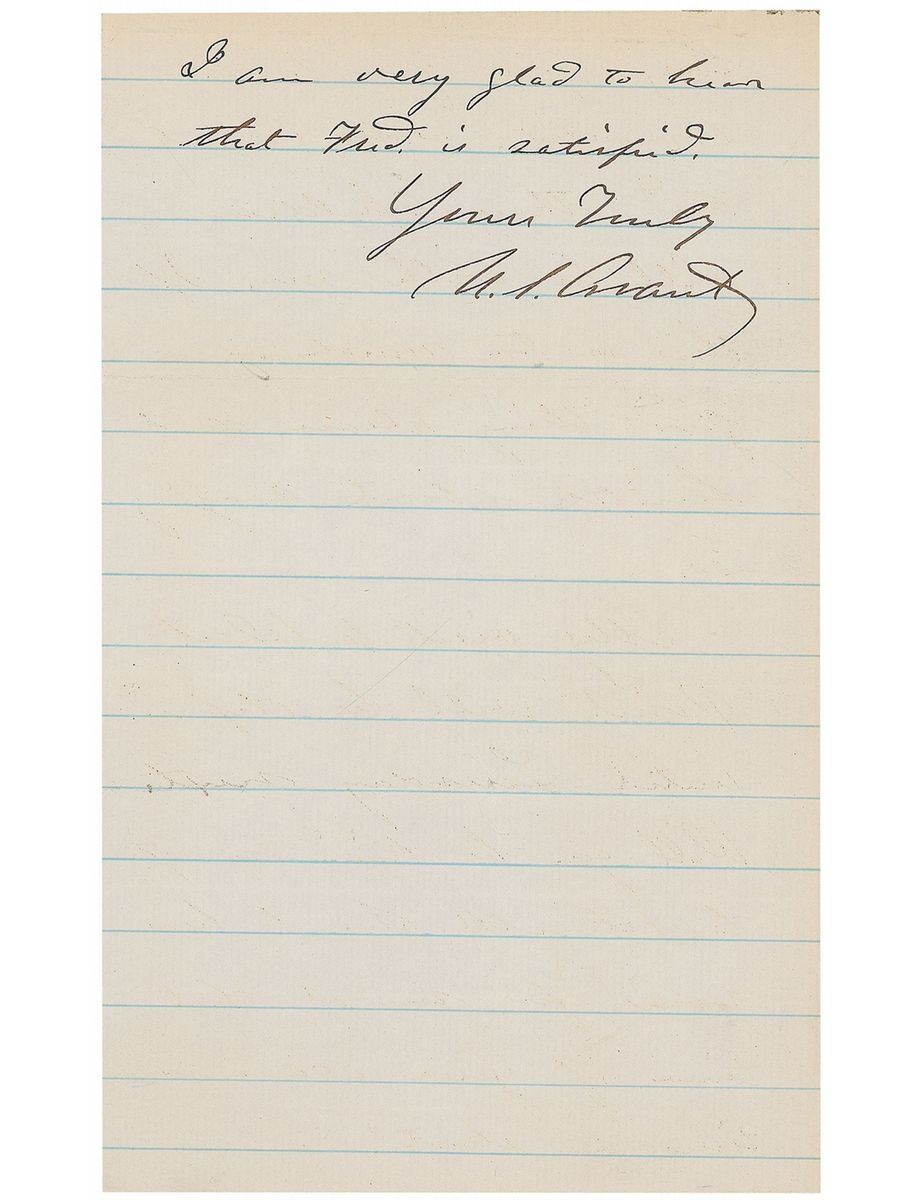 I am very glad to hear
that Fred. is satisfied.
Yours Truly
U. S. Grant